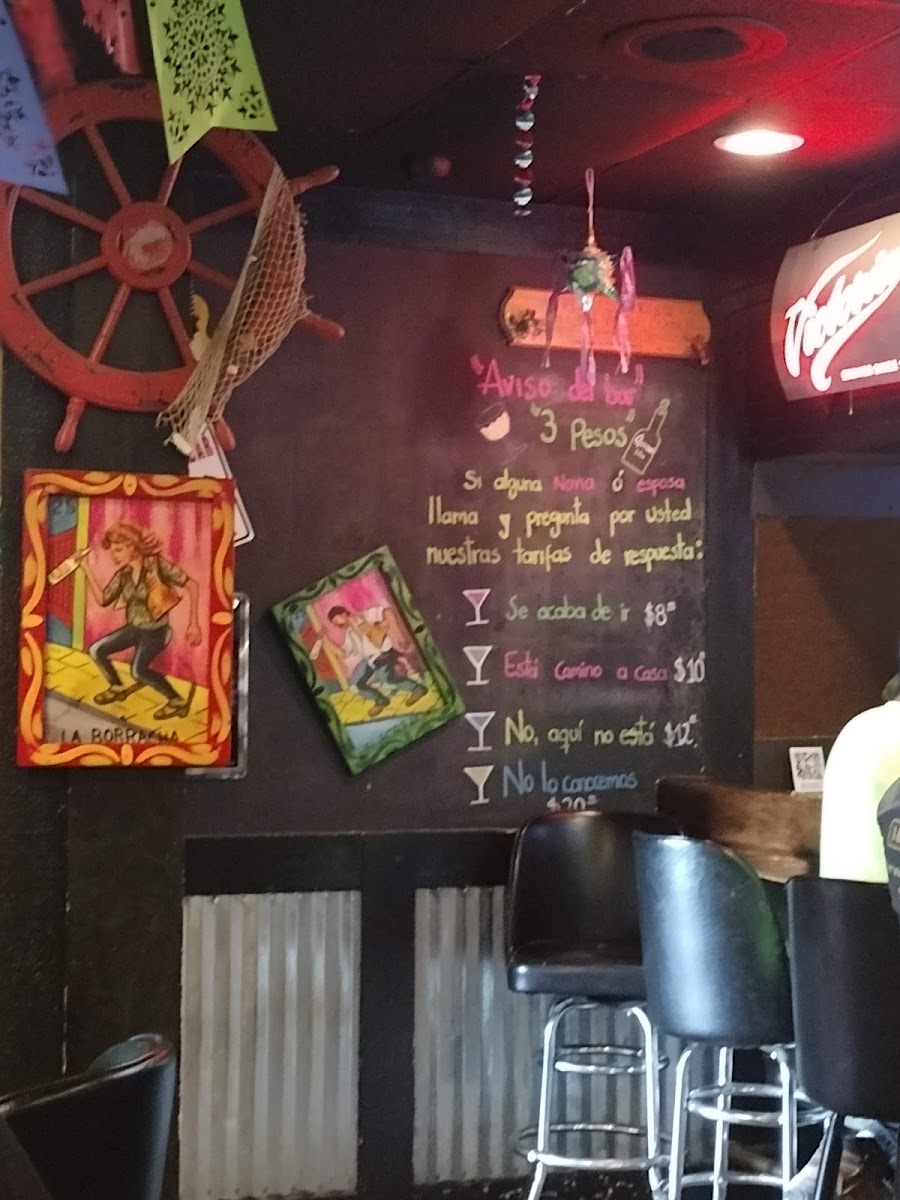 "Aviso del bar"
"3 Pesos"
Si alguna Novia ó esposa
llama y pregunta por usted
nuestras tarifas de respuesta:
Se acaba de ir $8
Está Camino a Casa $10
No, aquí no está $12
No lo conocemos
$20
LA BORRACHA
25